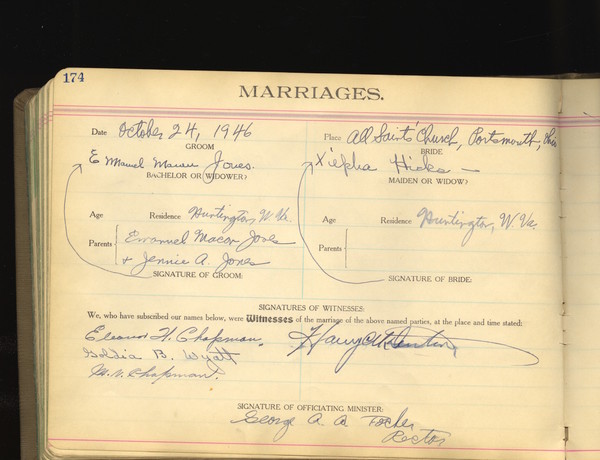 174
MARRIAGES.
Date October 24, 1946 Place All Saints' Church, Portsmouth, Ohio
GROOM BRIDE
E Manuel Macon Jones. Xiepha Hicks —
BACHELOR OR WIDOWER? MAIDEN OR WIDOW?
Age Residence Huntington, W. Va. Age Residence Huntington, W. Va.
Parents Emanuel Macon Jones Parents
& Jennie A. Jones
SIGNATURE OF GROOM: SIGNATURE OF BRIDE:
SIGNATURES OF WITNESSES:
We, who have subscribed our names below, were Witnesses of the marriage of the above named parties, at the place and time stated:
Eleanor H. Chapman. Harry
Goldia B. Wyatt
M. V. Chapman.
SIGNATURE OF OFFICIATING MINISTER:
George A. A. Tocher
Rector